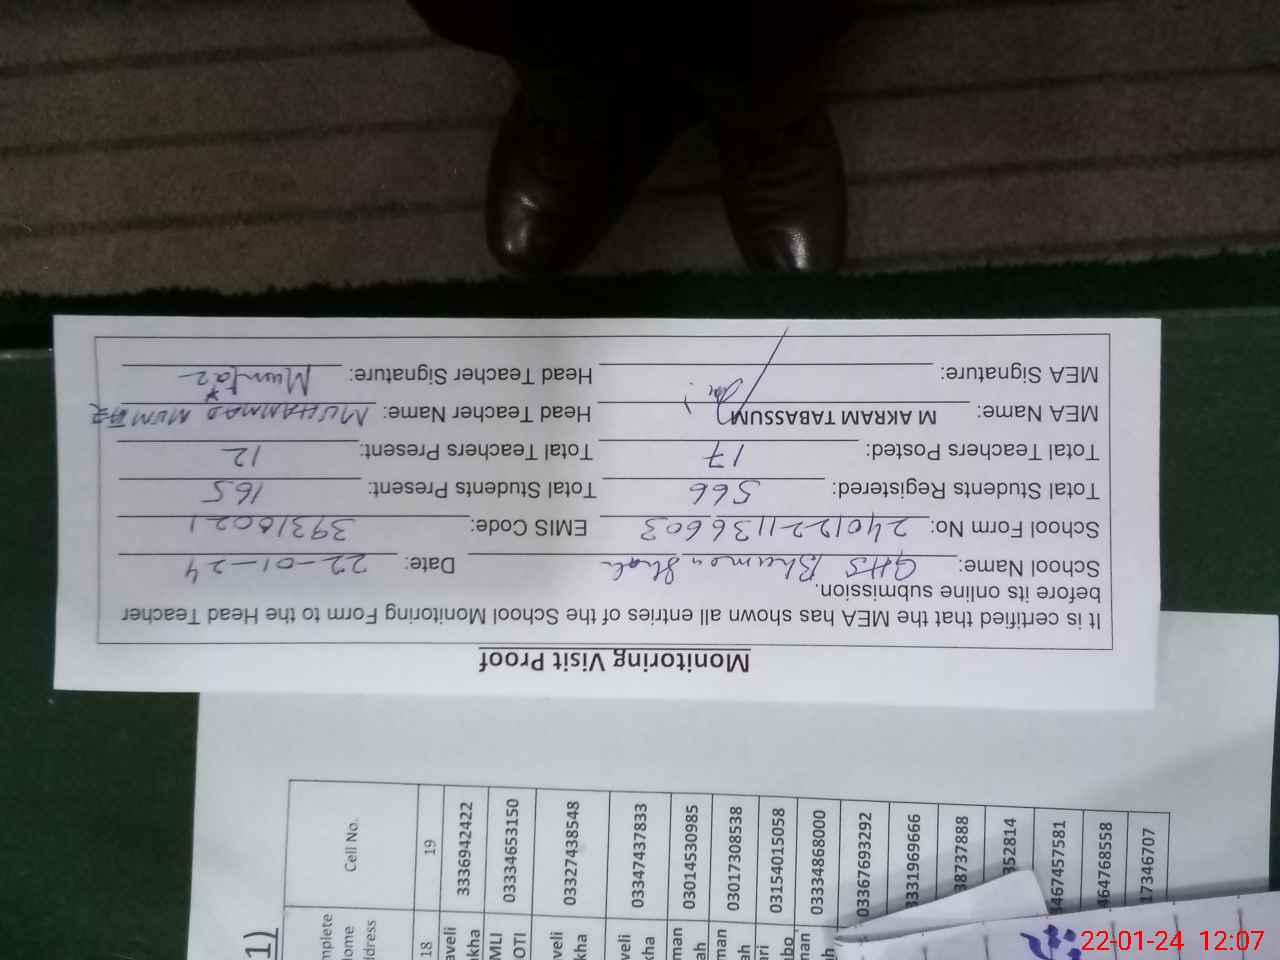 Monitoring Visit Proof
It is certified that the MEA has shown all entries of the School Monitoring Form to the Head Teacher
before its online submission.
School Name: GHS Bhaman Shah Date: 22-01-24
School Form No: 2401221136603 EMIS Code: 39310021
Total Students Registered: 566 Total Students Present: 165
Total Teachers Posted: 17 Total Teachers Present: 12
MEA Name: M AKRAM TABASSUM Head Teacher Name: MUHAMMAD MUMTAZ
MEA Signature: Head Teacher Signature: Mumtaz
1)
mplete
ome
ddress
Cell No.
18 19
aveli
kha
3336942422
MLI
OTI
03334653150
veli
kha
03327438548
veli
kha
03347437833
man
ah
03014530985
man
ah
03017308538
ari
bo
03154015058
man
h
03334868000
03367693292
3331969666
38737888
352814
3467457581
464768558
17346707
22-01-24 12:07